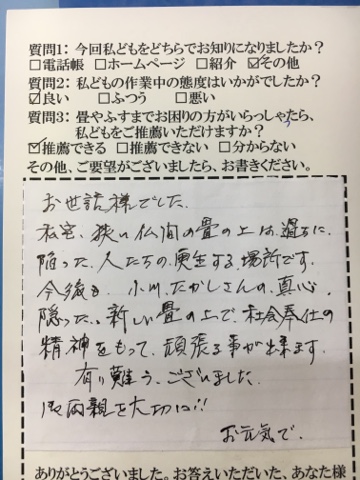 質問1：今回私どもをどちらでお知りになりましたか？
□電話帳 □ホームページ □紹介 ☑その他
質問2：私どもの作業中の態度はいかがでしたか？
☑良い □ふつう □悪い
質問3：畳やふすまでお困りの方がいらっしゃたら、
私どもをご推薦いただけますか？
☑推薦できる □推薦できない □分からない
その他、ご要望がございましたら、お書きください。
お世話様でした。
私宅、狭い仏間の畳の上は、過ちに
陥った、人たちの更生する場所です。
今後も、小川たかしさんの、真心、
隠った、新しい畳の上で、社会奉仕の
精神をもって、頑張る事が出来ます。
有り難う、ございました。
御両親を大切に!!
お元気で。
ありがとうございました。お答えいただいた、あなた様